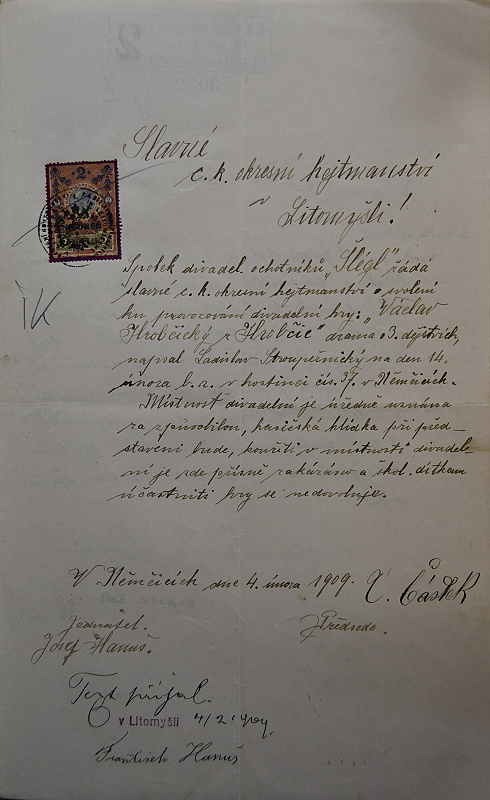 Slavné
c. k. okresní hejtmanství
v
Litomyšli!
2
Spolek divadel. ochotníků „Šlégl" žádá
slavné c. k. okresní hejtmanství o svolení
ku provozování divadelní hry: „Václav
Hrobčický z Hrobčic" drama o 3. dějstvích,
napsal Ladislav Stroupežnický na den 14.
února b. r. v hostinci čís. 37. v Němčicích.
Místnost divadelní je úředně uznána
za způsobilou, hasičská hlídka při před-
stavení bude, kouřiti v místnosti divadel-
ní je zde přísně zakázáno a škol. dítkám
účastniti hry se nedovoluje.
V Němčicích dne 4. února 1909.
Částek
Jednatel.
Josef Hanuš.
Předseda.
Text přijal.
v Litomyšli 4/2 1909.
František Hanuš